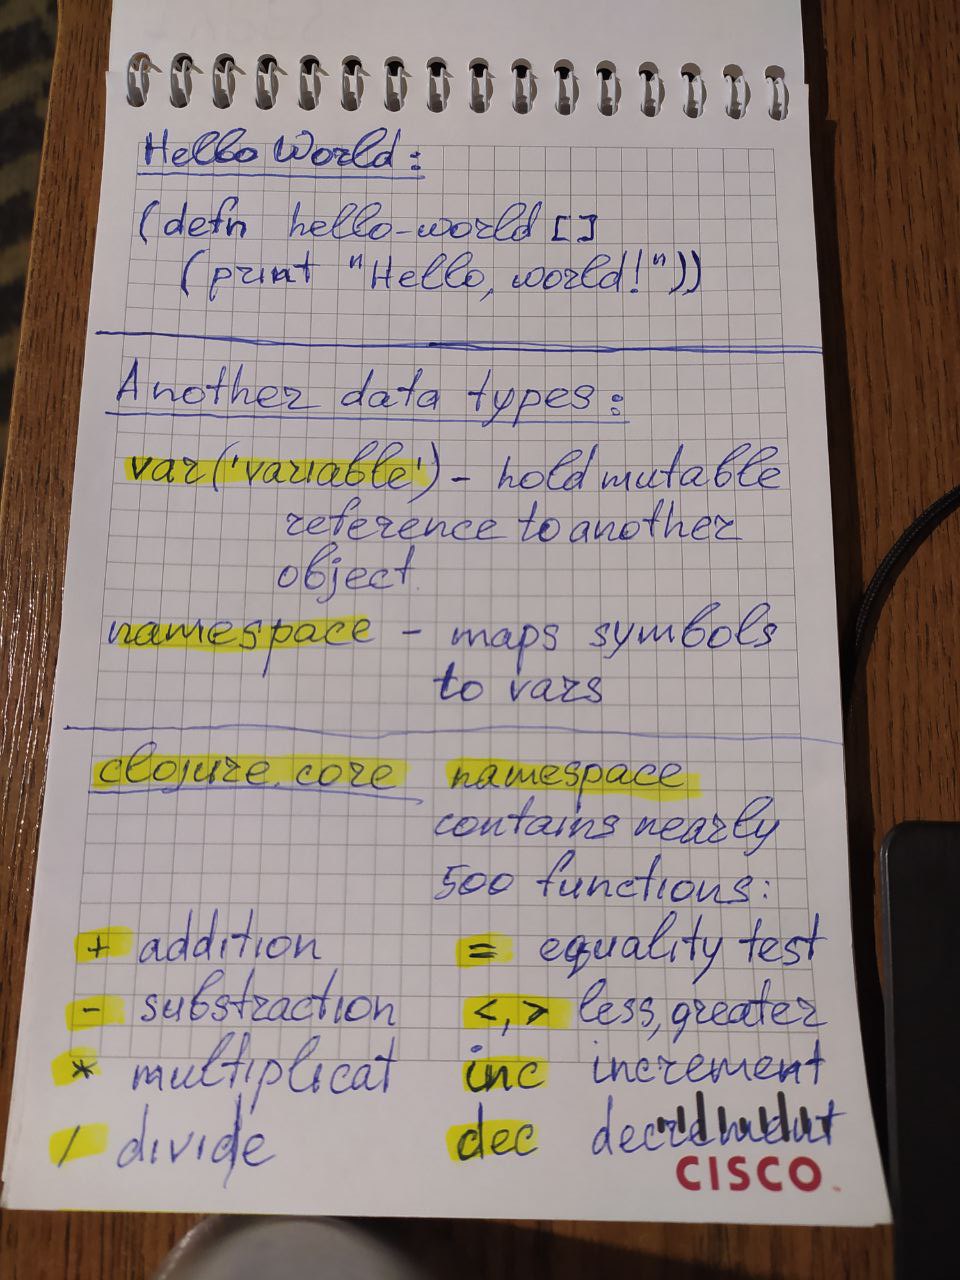 Hello World:
(defn hello-world []
(print "Hello, world!"))
Another data types:
var('variable') - hold mutable
reference to another
object.
namespace - maps symbols
to vars
clojure.core namespace
contains nearly
500 functions:
+ addition = equality test
- substraction <, > less, greater
* multiplicat inc increment
/ divide dec decrement
CISCO